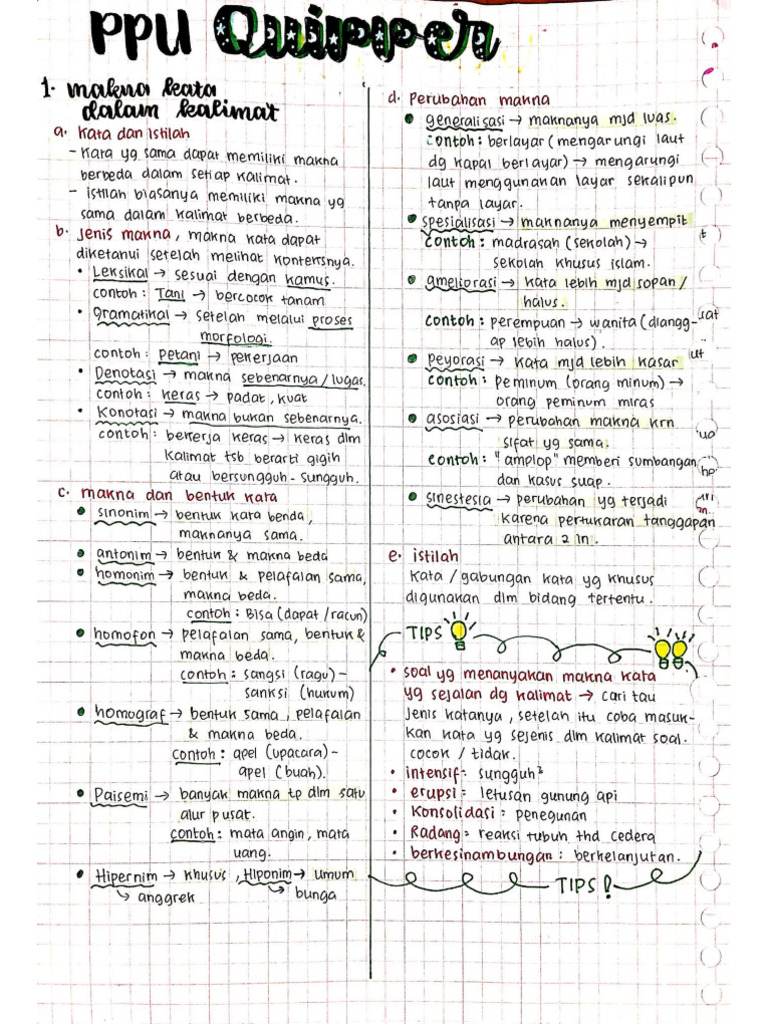 PPU Quipper
1. makna kata
dalam kalimat
a. Kata dan istilah
- Kata yg sama dapat memiliki makna
berbeda dalam setiap kalimat.
- istilah biasanya memiliki makna yg
sama dalam kalimat berbeda.
b. Jenis makna, makna kata dapat
diketahui setelah melihat konteksnya.
• Leksikal → sesuai dengan kamus.
contoh: Tani → bercocok tanam
• gramatikal → setelah melalui proses
morfologi.
contoh: petani → pekerjaan
• Denotasi → makna sebenarnya/lugas.
contoh: keras → padat, kuat
• Konotasi → makna bukan sebenarnya.
contoh: bekerja keras → keras dlm
kalimat tsb berarti gigih
atau bersungguh-sungguh.
c. makna dan bentuk kata
• sinonim → bentuk kata benda,
maknanya sama.
• antonim → bentuk & makna beda
• homonim → bentuk & pelafalan sama,
makna beda.
contoh: Bisa (dapat/racun)
• homofon → pelafalan sama, bentuk &
makna beda.
contoh: sangsi (ragu) -
sanksi (hukum)
• homograf → bentuk sama, pelafalan
& makna beda.
contoh: apel (upacara) -
apel (buah).
• Paisemi → banyak makna tp dlm satu
alur pusat.
contoh: mata angin, mata
uang.
• Hipernim → khusus, Hiponim → umum
↳ anggrek ↳ bunga
d. Perubahan makna
• generalisasi → maknanya mjd luas.
contoh: berlayar (mengarungi laut
dg kapal berlayar) → mengarungi
laut menggunakan layar sekalipun
tanpa layar.
• spesialisasi → maknanya menyempit
contoh: madrasah (sekolah) →
sekolah khusus islam.
• ameliorasi → kata lebih mjd sopan/
halus.
contoh: perempuan → wanita (diangg-
ap lebih halus).
• peyorasi → kata mjd lebih kasar
contoh: peminum (orang minum) →
orang peminum miras
• asosiasi → perubahan makna krn
sifat yg sama.
contoh: "amplop" memberi sumbangan
dan kasus suap.
• sinestesia → perubahan yg terjadi
karena pertukaran tanggapan
antara 2 In.
e. istilah
Kata/gabungan kata yg khusus
digunakan dlm bidang tertentu.
TIPS
• soal yg menanyakan makna kata
yg sejalan dg kalimat → cari tau
jenis katanya, setelah itu coba masuk-
kan kata yg sejenis dlm kalimat soal.
cocok / tidak.
• intensif = sungguh²
• erupsi = letusan gunung api
• Konsolidasi = penegunan
• Radang = reaksi tubuh thd cedera
• berkesinambungan = berkelanjutan.
TIPS!